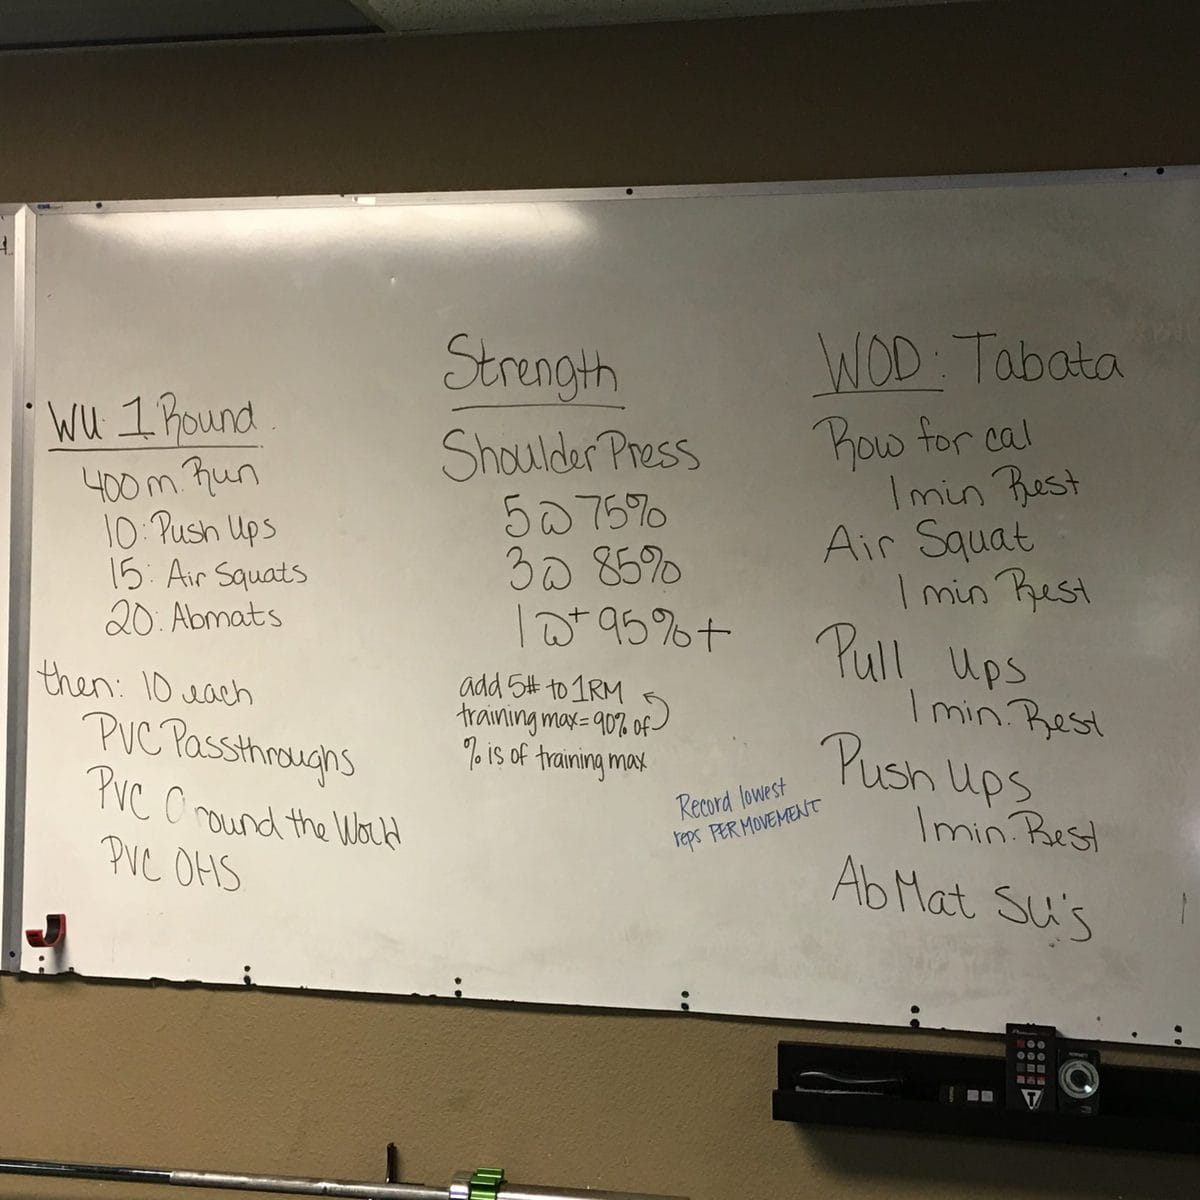 WU: 1 Round
400 m. Run
10: Push Ups
15: Air Squats
20: Abmats
then: 10 each
PVC Passthroughs
PVC Around the World
PVC OHS
Strength
Shoulder Press
5 @ 75%
3 @ 85%
1 @+ 95%+
add 5# to 1RM
training max = 90% of
% is of training max
Record lowest
reps PER MOVEMENT
WOD: Tabata
Row for cal
1 min Rest
Air Squat
1 min Rest
Pull Ups
1 min. Rest
Push Ups
1 min. Rest
AbMat SU's